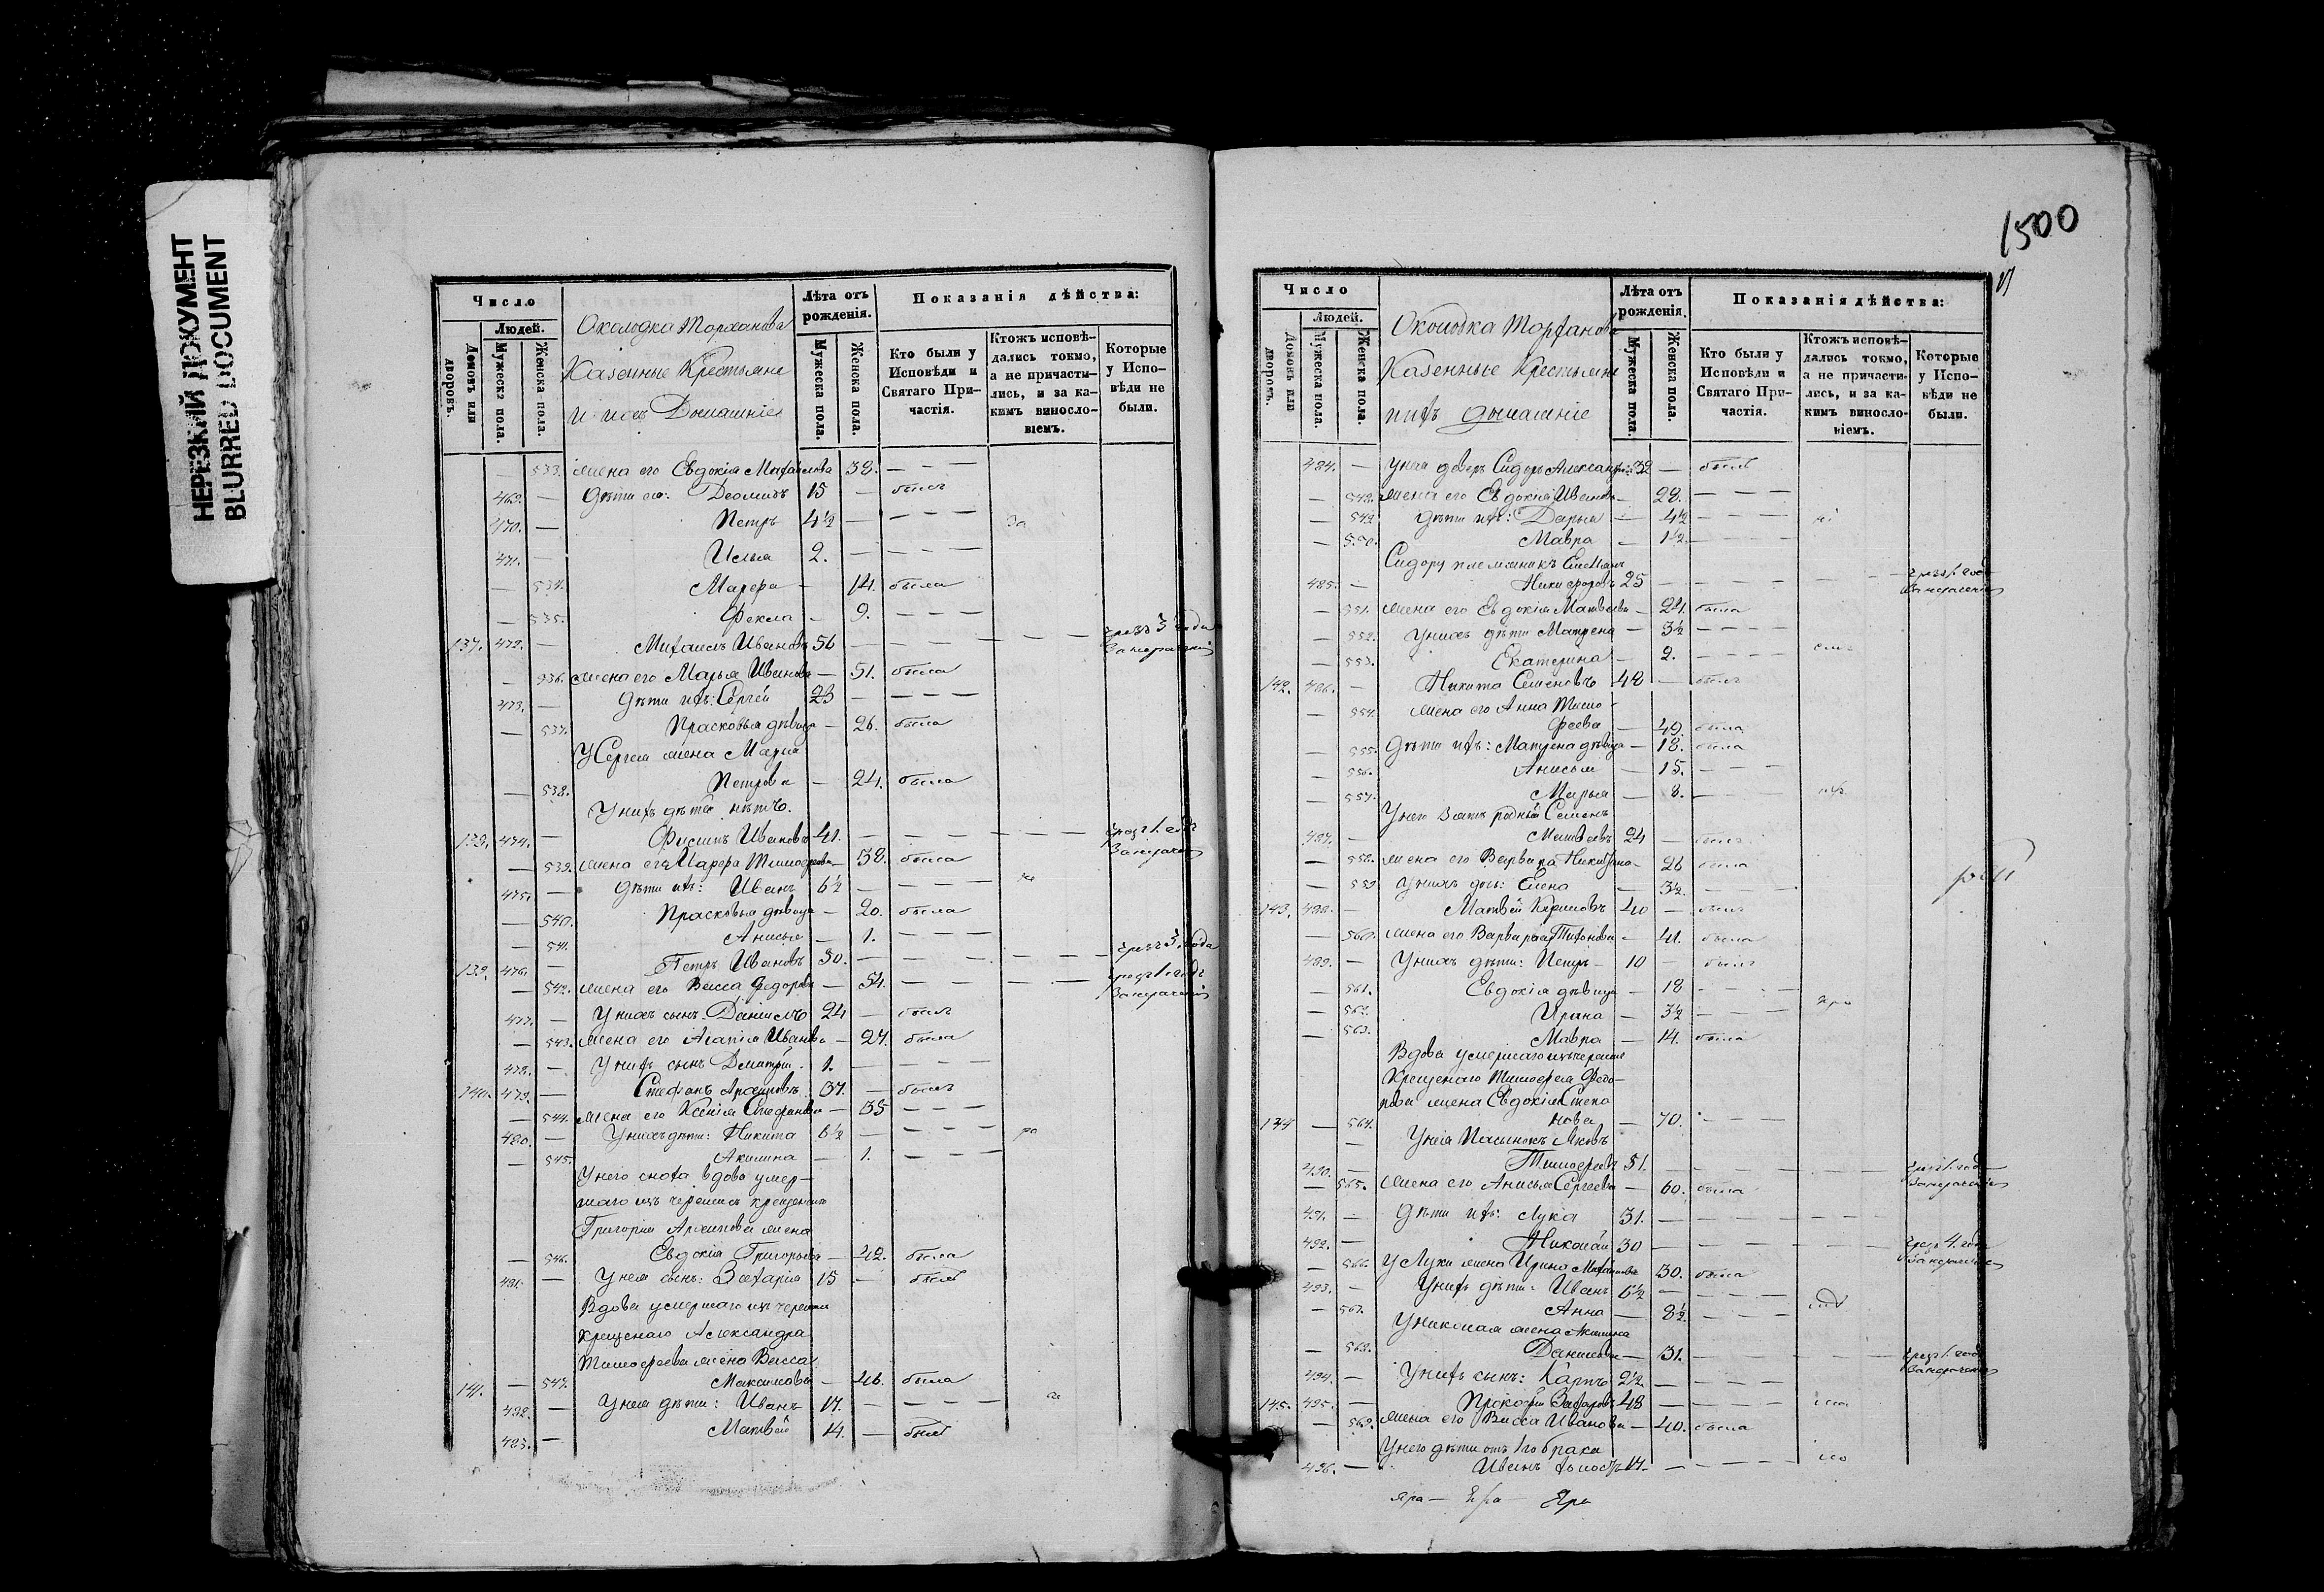 НЕРЕЗКИЙ ДОКУМЕНТ
BLURRED DOCUMENT
Число
Людей.
Домовъ или дворовъ.
Мужеска пола.
Женска пола.
Околодка Торханова
Казенные Крестьяне
и ихъ Домашніе
Лѣта отъ рожденія.
Мужеска пола.
Женска пола.
Показанія дѣйства:
Кто были у Исповѣди и Святаго Причастія.
Ктожъ исповѣдались токмо, а не причастились, и за какимъ винословіемъ.
Которые у Исповѣди не были.
— 533. жена его Евдокія Михайлова 38. — — —
469. — Дѣти его: Деомидъ 15 — былъ
470. — Петръ 4½ — — — — За
471. — Илья 2. — — — —
— 534. Марѳа — 14. была
— 535. Ѳекла — 9. — — —
137. 472. — Михаилъ Ивановъ 56 — — — — — — чрезъ 3 года
— 536. жена его Марья Иванова — 51. была
473. — Дѣти ихъ: Сергей 23 — — — —
— 537. Прасковья дѣвица — 26. была
У Сергея жена Марья
— 538. Петрова — 24. была
У нихъ дѣтей нѣтъ.
138. 474. — Филипъ Ивановъ 41. — — — — — — чрезъ 1. годъ
— 539. жена его Марѳа Тимоѳеева — 38. была
475. — Дѣти ихъ: Иванъ 6½ — — — —
— 540. Прасковья дѣвица — 20. была
— 541. Анисья — 1. — — —
139. 476. — Петръ Ивановъ 50. — — — — — — чрезъ 3. года
— 542. жена его Васса Ѳедорова — 54. — — — — — чрезъ 1 годъ
477. — У нихъ сынъ: Даниилъ 24 — былъ
— 543. жена его Агапія Иванова — 27. была
478. — У нихъ сынъ Дмитрій 1. — — — —
140. 479. — Стефанъ Архиповъ 37. — былъ
— 544. жена его Ксенія Стефанова — 35 — — —
480. — У нихъ дѣти: Никита 6½ — — — — ра
— 545. Акилина — 1. — — —
У него сноха вдова умер-
шаго изъ черемисъ крещенаго
Григорія Архипова жена
— 546. Евдокія Григорьева — 42. была
481. — У нея сынъ: Захарія 15 — былъ
Вдова умершаго изъ черемисъ
крещенаго Александра
Тимоѳеева жена Васса
141. — 547. Максимова — 46. была
482. — У нея дѣти: Иванъ 17. — — — —
483. — Матвѣй 14. — былъ
1500
Число
Людей.
Домовъ или дворовъ.
Мужеска пола.
Женска пола.
Околодка Торханова
Казенные Крестьяне
и ихъ домашніе
Лѣта отъ рожденія.
Мужеска пола.
Женска пола.
Показанія дѣйства:
Кто были у Исповѣди и Святаго Причастія.
Ктожъ исповѣдались токмо, а не причастились, и за какимъ винословіемъ.
Которые у Исповѣди не были.
484. — У нея деверь Сидоръ Александровъ 32 — былъ
— 548. жена его Евдокія Иванова — 28. — — —
— 549. Дѣти ихъ: Дарья — 4½ — — —
— 550. Мавра — 1½ — — —
Сидору племянникъ Емельянъ
485. — Никифоровъ 25 — — — — — — чрезъ 1. годъ
— 551. жена его Евдокія Матвѣева — 24. была
— 552. У нихъ дѣти Матрена — 3½ — — —
— 553. Екатерина — 2. — — —
142. 486. — Никита Семеновъ 48 — былъ
— 554. жена его Анна Тимо-
ѳеева — 49. была
— 555. Дѣти ихъ: Матрена дѣвица — 18. была
— 556. Анисья — 15. — — —
— 557. Марья — 8. — — —
У него зять родный Семенъ
487. — Матвѣевъ 24 — былъ
— 558. жена его Варвара Никитина — 26 была
— 559 У нихъ дочь: Елена — 3½. — — —
143. 488. — Матвѣй Кириловъ 40 — былъ
— 560. жена его Варвара Тихонова — 41. была
489. — У нихъ дѣти: Петръ 10 — былъ
— 561. Евдокія дѣвица — 18 — — —
— 562. Ирина — 3½ — — —
— 563. Мавра — 14. была
Вдова умершаго изъ черемисъ
Крещенаго Тимоѳея Ѳедо-
рова жена Евдокія Степа
144 — 564. нова — 70. — — —
У нея Пасынокъ Яковъ
490. — Тимоѳеевъ 51. — — — — — — чрезъ 1. годъ
— 565. жена его Анисья Сергеева — 60. была
491. — Дѣти ихъ: Лука 31. — — — — — —
492. — Николай 30 — — — — — — чрезъ 4. года
— 566. У Луки жена Ирина Михайлова 30. была
493. — У нихъ дѣти: Иванъ 6½ — — — —
— 567. Анна — 8½. — — —
У Николая жена Акилина
— 568. Данилова — 31. — — — — — чрезъ 1. годъ
494. — У нихъ сынъ: Карпъ 2½ — — — —
145. 495. — Прокопій Захаровъ 48 — — — —
— 569. жена его Васса Иванова — 40. была
У него дѣти отъ 1го брака
496. — Иванъ холостъ 17. — — — —